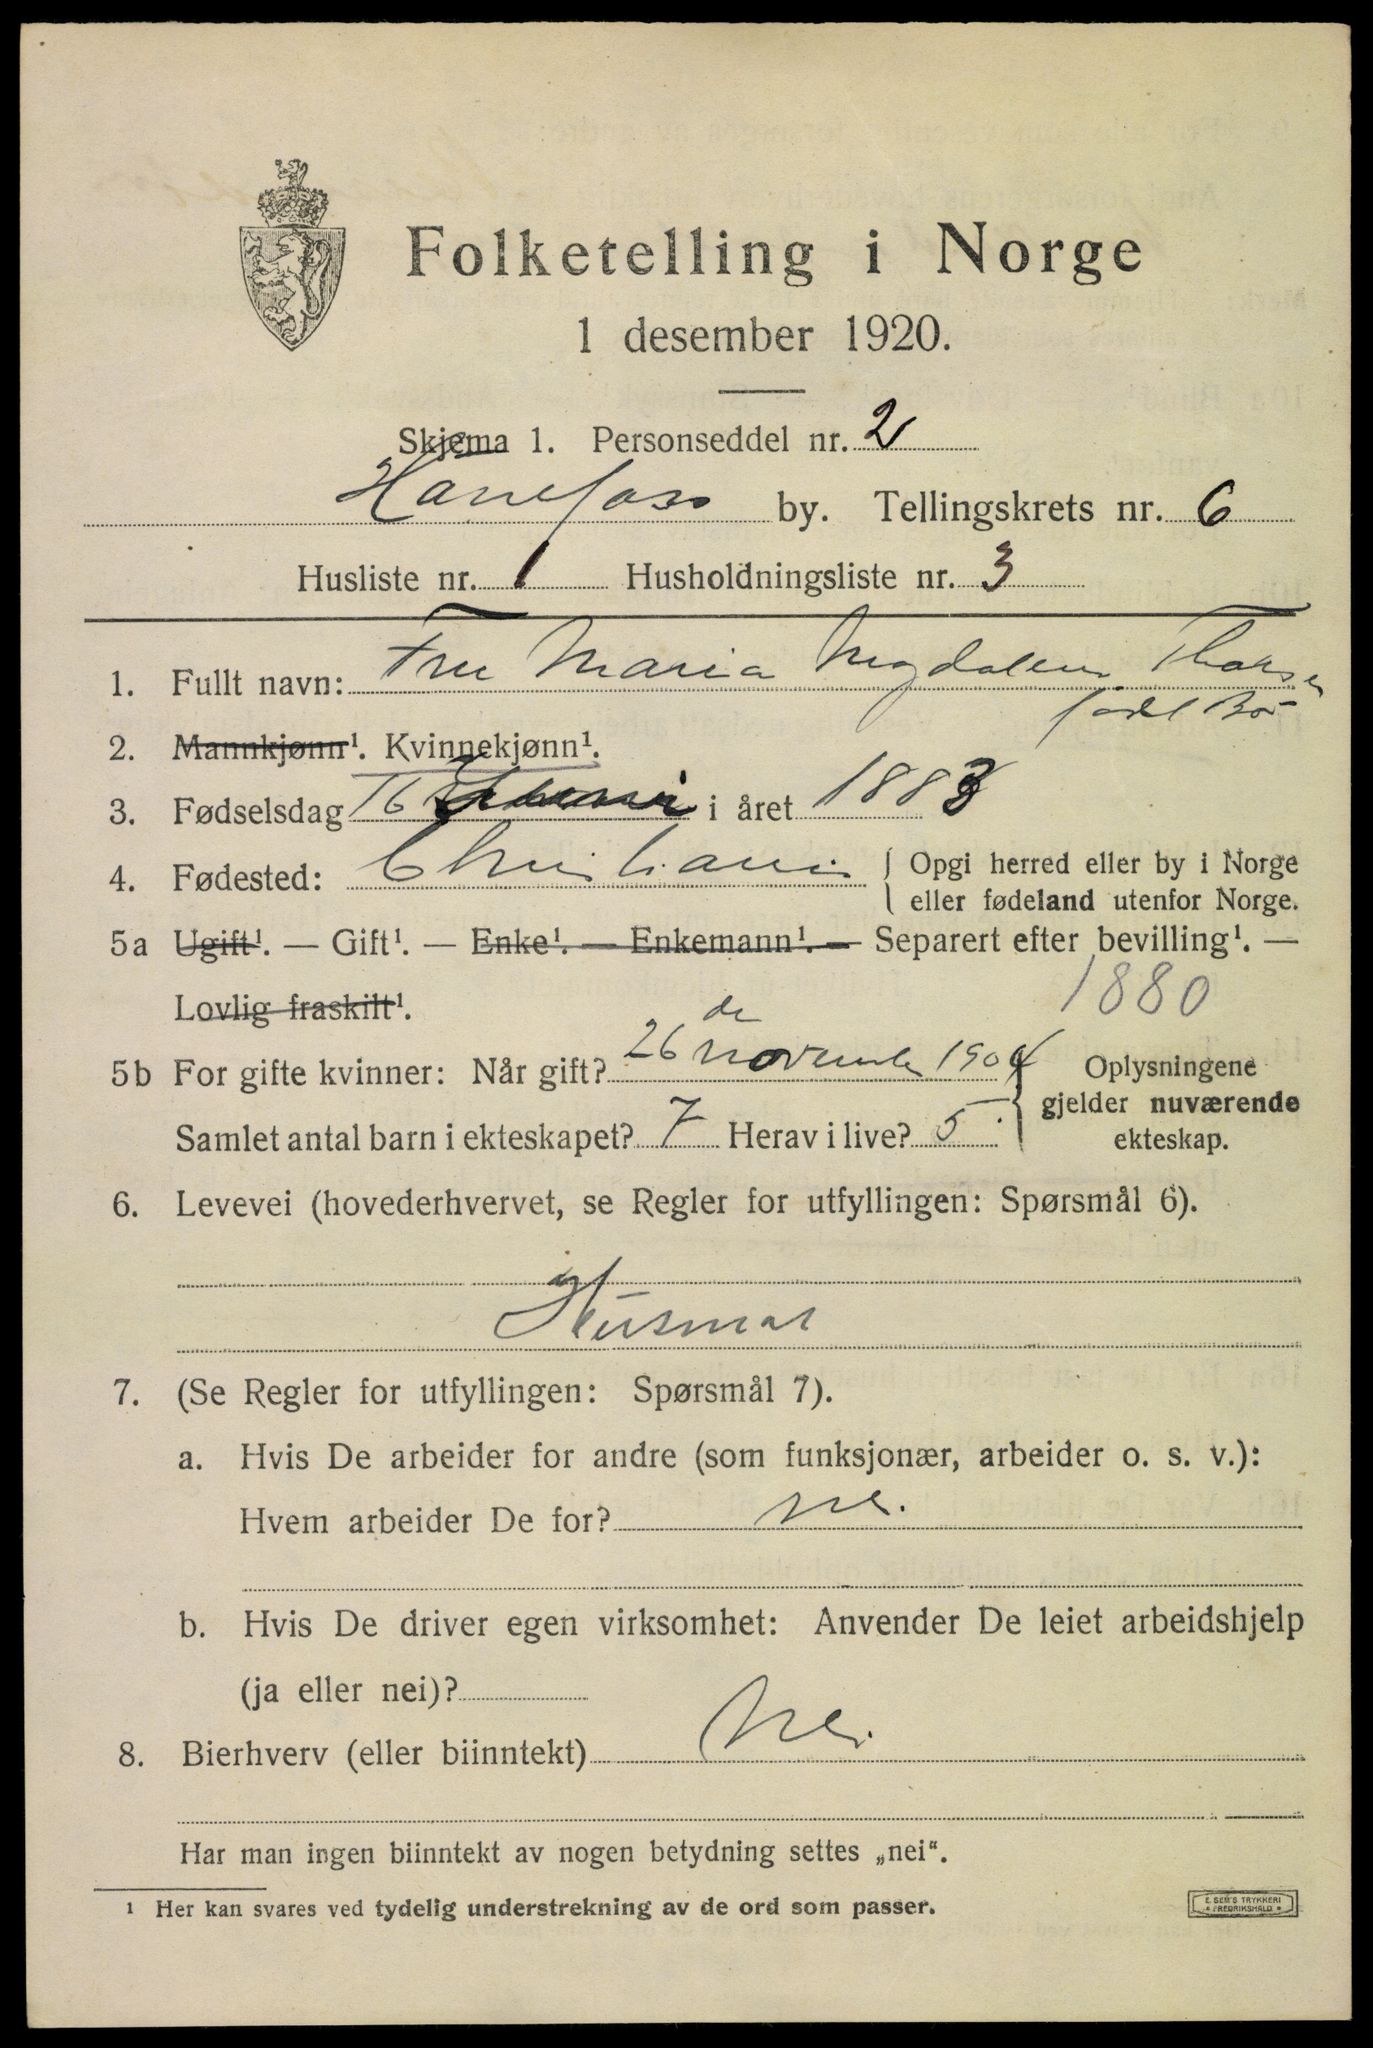 Folketelling i Norge
1 desember 1920.
Skjema 1. Personseddel nr. 2
Hønefoss by. Tellingskrets nr. 6
Husliste nr. 1 Husholdningsliste nr. 3
1. Fullt navn: Fru Maria Magdalene Thorsen
født Bø
2. Mannkjønn¹. Kvinnekjønn¹.
3. Fødselsdag 16 i året 1883
4. Fødested: Christiania { Opgi herred eller by i Norge
eller fødeland utenfor Norge.
5a Ugift¹. — Gift¹. — Enke¹. — Enkemann¹. — Separert efter bevilling¹. —
Lovlig fraskilt¹. 1880
5b For gifte kvinner: Når gift? 26 de november 1904 Oplysningene
gjelder nuværende
Samlet antal barn i ekteskapet? 7 Herav i live? 5 ekteskap.
6. Levevei (hovederhvervet, se Regler for utfyllingen: Spørsmål 6).
Husmor
7. (Se Regler for utfyllingen: Spørsmål 7).
a. Hvis De arbeider for andre (som funksjonær, arbeider o. s. v.):
Hvem arbeider De for? nei.
b. Hvis De driver egen virksomhet: Anvender De leiet arbeidshjelp
(ja eller nei)?
8. Bierhverv (eller biinntekt) Nei
Har man ingen biinntekt av nogen betydning settes „nei“.
¹ Her kan svares ved tydelig understrekning av de ord som passer.
E. SEM'S TRYKKERI
FREDRIKSHALD